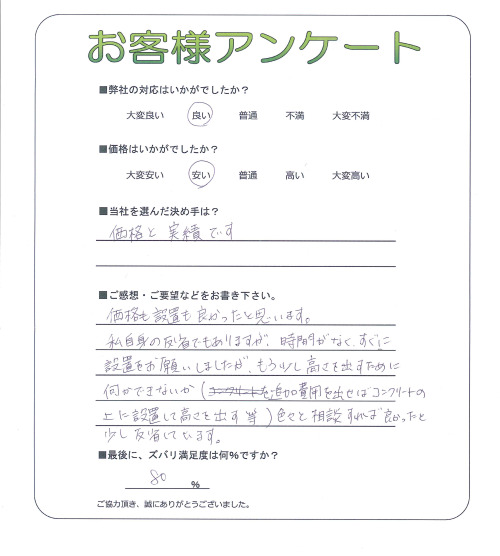 お客様アンケート
■弊社の対応はいかがでしたか？
大変良い 良い 普通 不満 大変不満
■価格はいかがでしたか？
大変安い 安い 普通 高い 大変高い
■当社を選んだ決め手は？
価格と実績です
■ご感想・ご要望などをお書き下さい。
価格も設置も良かったと思います。
私自身の反省でもありますが、時間がなく、すぐに
設置をお願いしましたが、もう少し高さを出すために
何かできないか（コンクリートを追加費用を出せばコンクリートの
上に設置して高さを出す等）色々と相談すれば良かったと
少し反省しています。
■最後に、ズバリ満足度は何%ですか？
80 %
ご協力頂き、誠にありがとうございました。